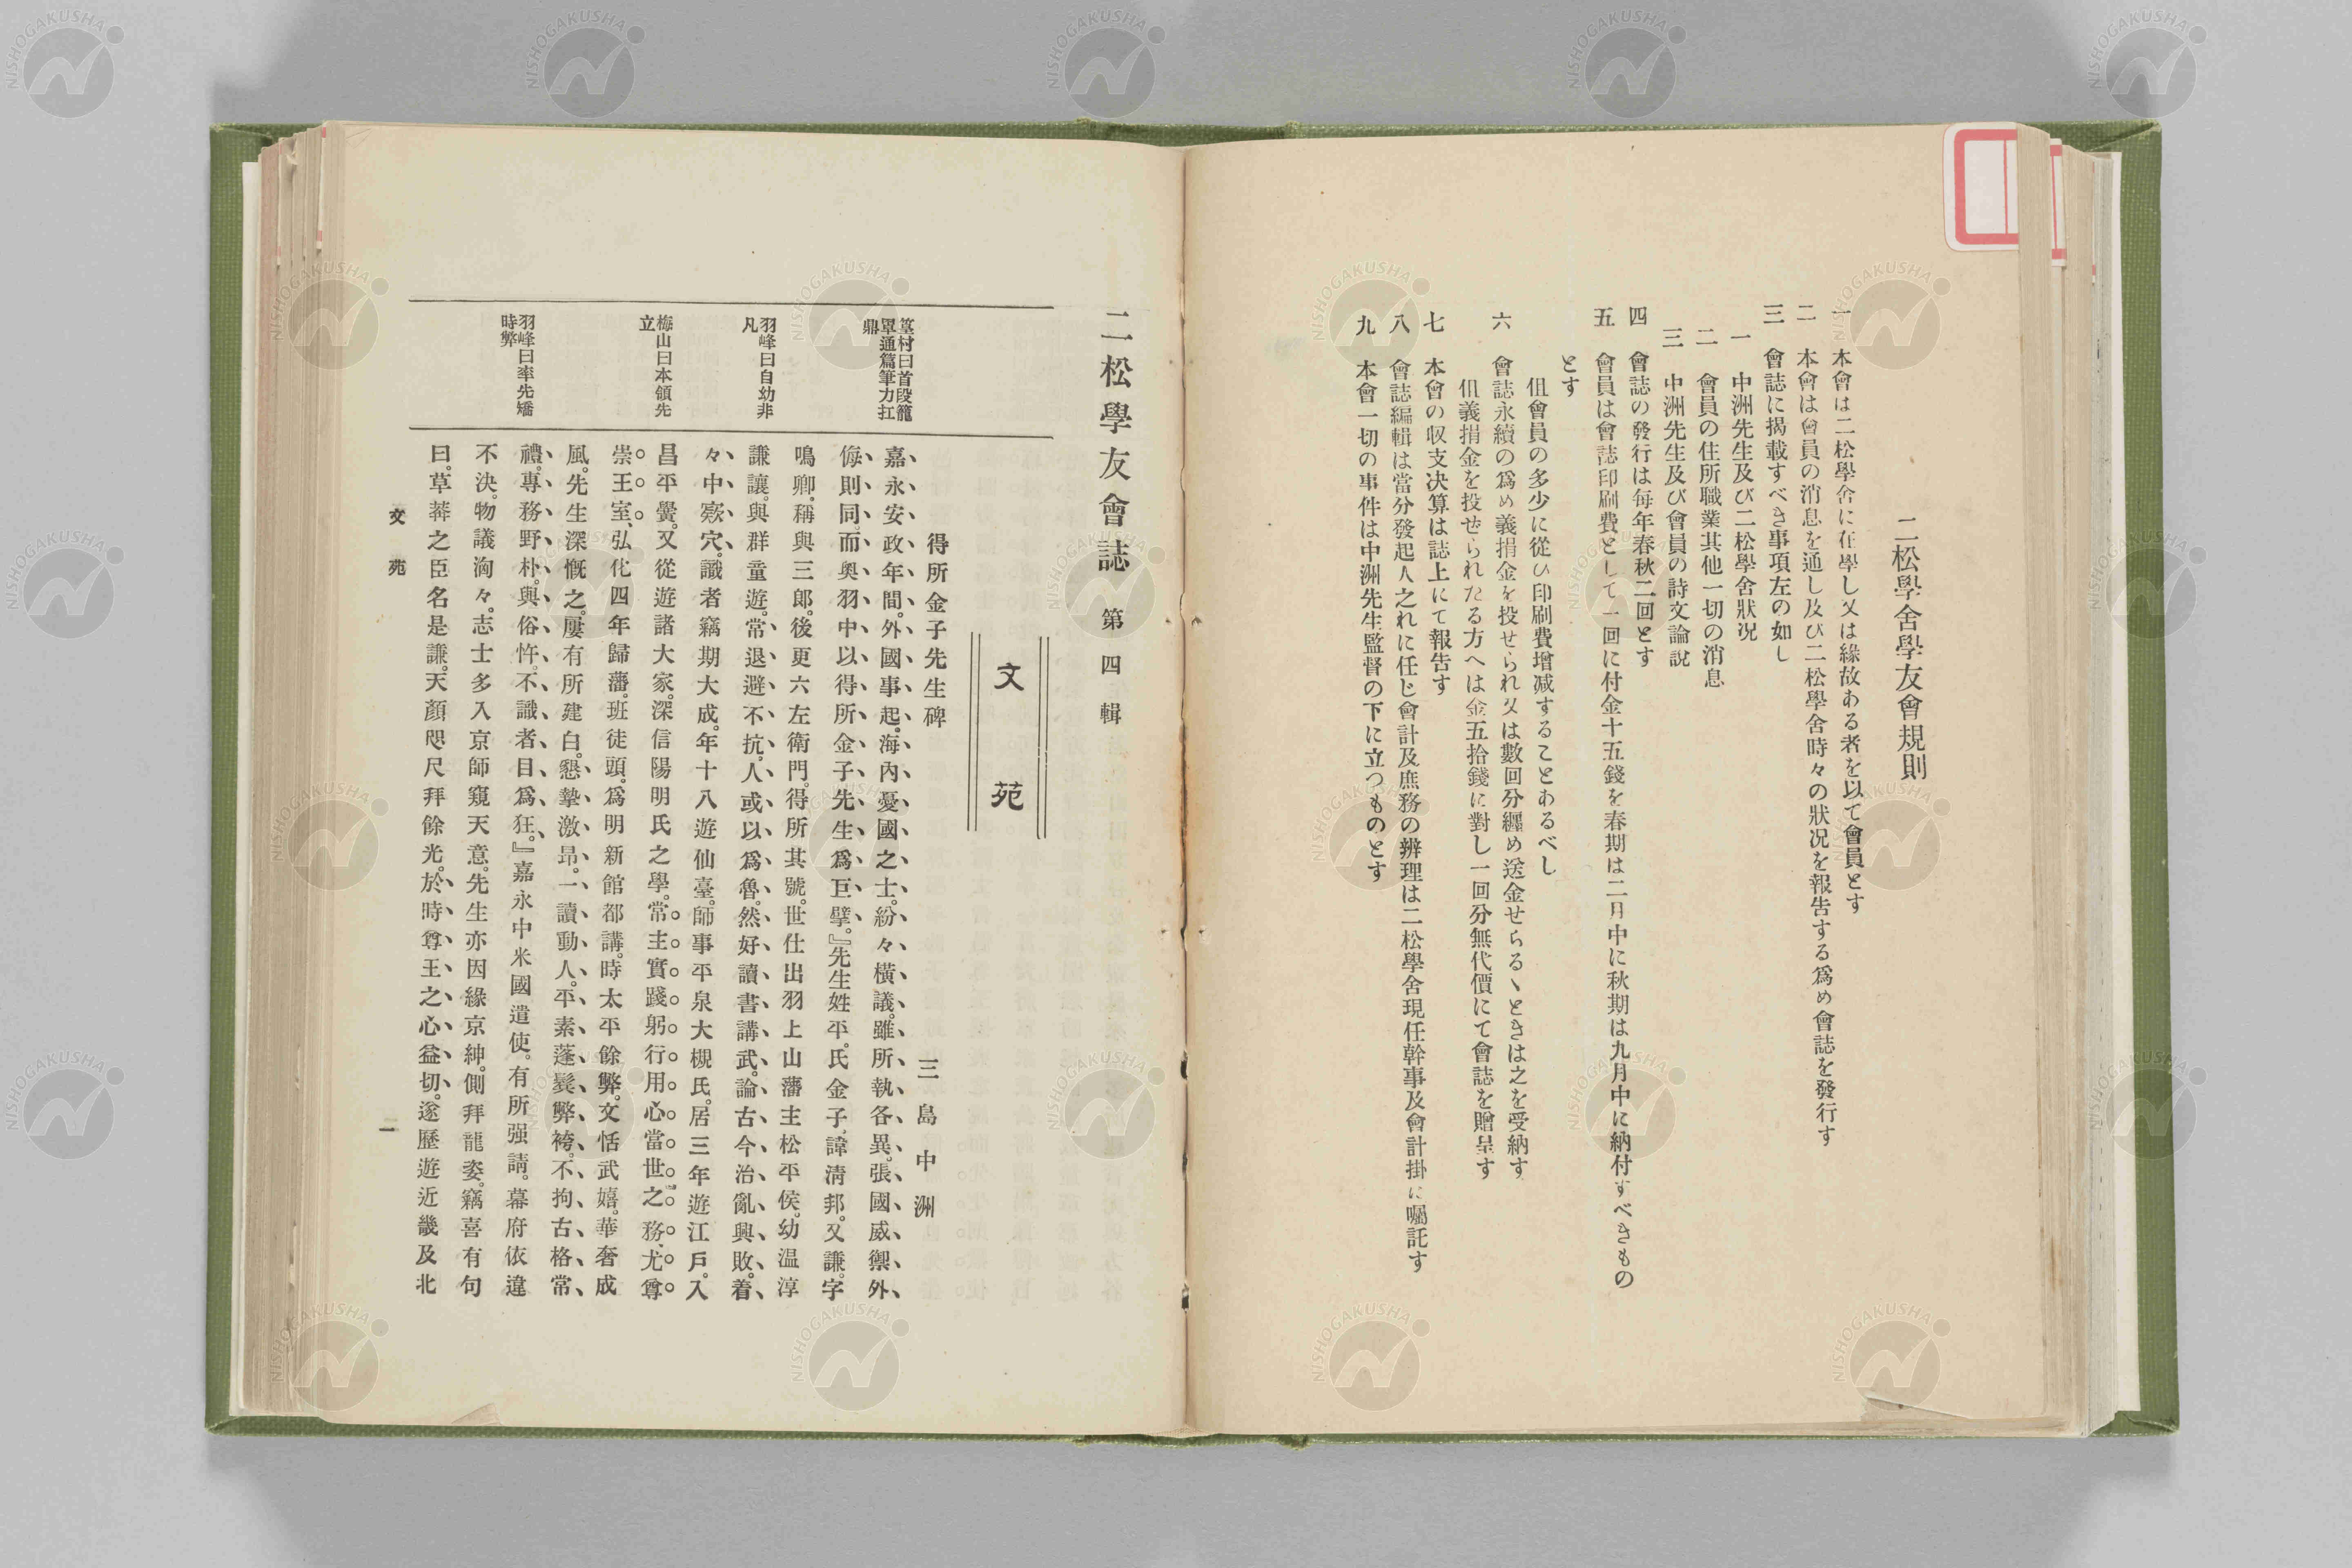 二松學舍學友會規則
一 本會は二松學舍に在學し又は緣故ある者を以て會員とす
二 本會は會員の消息を通し及び二松學舍時々の狀况を報告する爲め會誌を發行す
三 會誌に揭載すべき事項左の如し
一 中洲先生及び二松學舍狀况
二 會員の住所職業其他一切の消息
三 中洲先生及び會員の詩文論說
四 會誌の發行は每年春秋二回とす
五 會員は會誌印刷費として一回に付金十五錢を春期は二月中に秋期は九月中に納付すべきもの
とす
但會員の多少に從ひ印刷費增减することあるべし
六 會誌永續の爲め義捐金を投せられ又は數回分纒め送金せらるヽときは之を受納す
但義捐金を投せられたる方へは金五拾錢に對し一回分無代價にて會誌を贈呈す
七 本會の収支決算は誌上にて報告す
八 會誌編輯は當分發起人之れに任じ會計及庶務の辨理は二松學舍現任幹事及會計掛に囑託す
九 本會一切の事件は中洲先生監督の下に立つものとす
二松學友會誌 第四輯
文苑
得所金子先生碑
三島中洲
篁村曰首段籠
罩通篇筆力扛
鼎
嘉永安政年間。外國事起。海內憂國之士。紛々橫議。雖所執各異。張國威禦外
侮則同。而奧羽中以得所金子先生爲巨擘。』先生姓平。氏金子。諱淸邦。又謙。字
鳴卿。稱與三郞。後更六左衛門。得所其號。世仕出羽上山藩主松平侯。幼温淳
羽峰曰自幼非
凡
謙讓。與群童遊。常退避不抗。人或以爲魯。然好讀書講武。論古今治亂興敗。着
々中窽穴。識者竊期大成。年十八遊仙臺。師事平泉大槻氏。居三年遊江戶。入
梅山曰本領先
立
昌平黌。又從遊諸大家。深信陽明氏之學。常主實踐躬行用心當世之務。尤尊
崇王室。弘化四年歸藩。班徒頭。爲明新館都講。時太平餘弊。文恬武嬉。華奢成
風。先生深慨之。屢有所建白。懇摯激昂。一讀動人。平素蓬髮弊袴。不拘古格常
羽峰曰率先矯
時弊
禮。專務野朴。與俗忤。不識者目爲狂。』嘉永中米國遣使。有所强請。幕府依違
不決。物議洶々。志士多入京師窺天意。先生亦因緣京紳。側拜龍姿。竊喜有句
曰。草莽之臣名是謙。天顏咫尺拜餘光。於時尊王之心益切。遂歷遊近畿及北
文苑
一
NISHOGAKUSHA